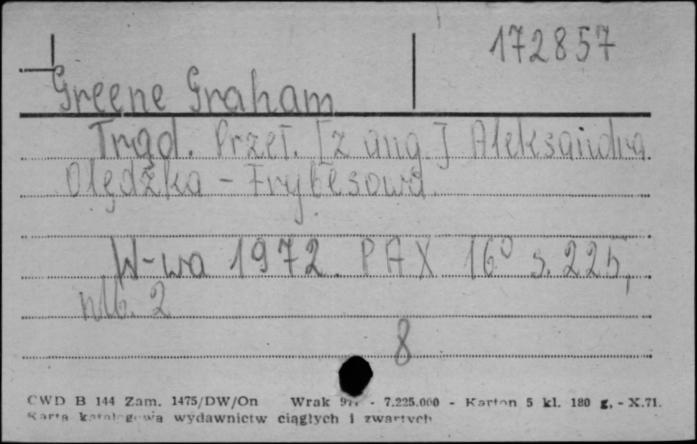 172857
Greene Graham
Trąd. Przeł. [z ang.] Aleksandra
Olędzka - Frybesowa.
W-wa 1972. PAX 16° s. 225,
nlb. 2
8
CWD B 144 Zam. 1475/DW/On Wrak - 7.225.000 - Karton 5 kl. 180 g, - X.71.
Karta katalogowa wydawnictw ciągłych i zwartych